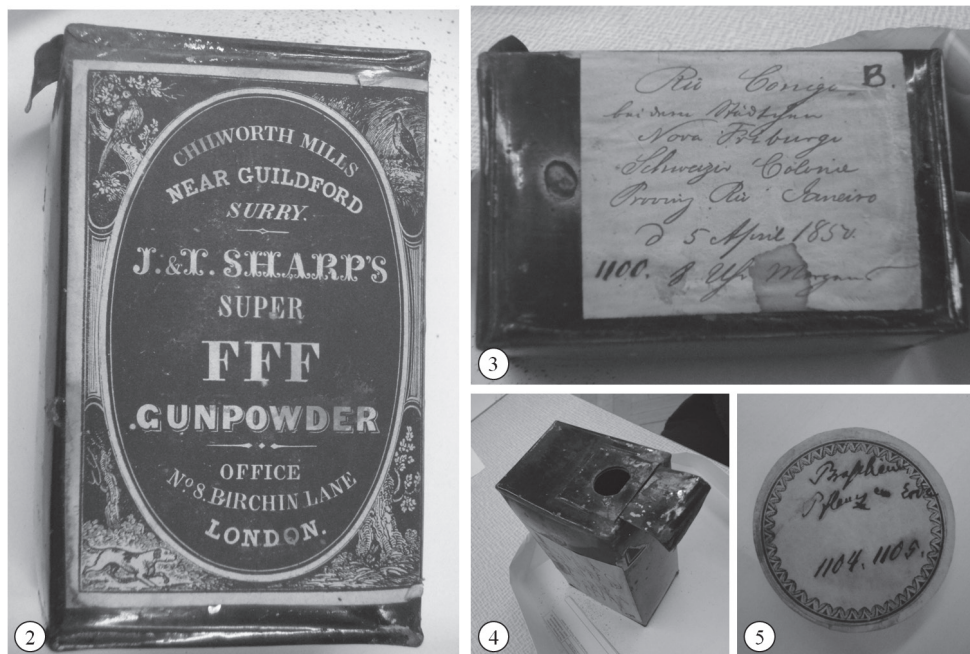 CHILWORTH MILLS
NEAR GUILDFORD
SURRY.
J. & T. SHARP'S
SUPER
FFF
GUNPOWDER
OFFICE
Nº 8. BIRCHIN LANE
LONDON.
2
B.
Rio
bei dem Städtchen
Nova Friburgo
Schweizer Colonie
Provinz Rio Janeiro
d 5 April 1850.
1100.
3
4
1104. 1105.
5